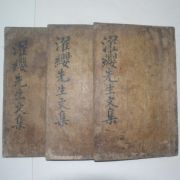 濯纓先生文集
濯纓先生文集
濯纓先生文集